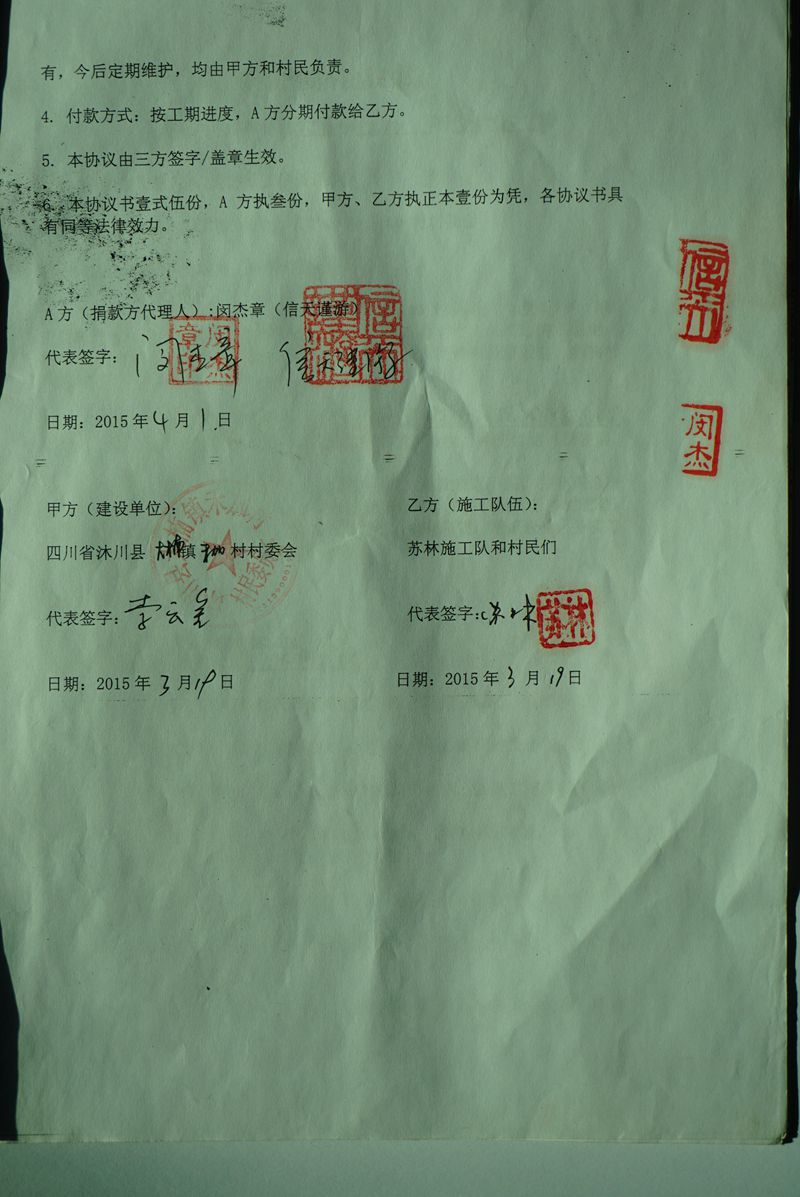 有，今后定期维护，均由甲方和村民负责。
4. 付款方式：按工期进度，A方分期付款给乙方。
5. 本协议由三方签字/盖章生效。
6. 本协议书壹式伍份，A 方执叁份，甲方、乙方执正本壹份为凭，各协议书具
有同等法律效力。
A方（捐款方代理人）:闵杰章（信天谨游）
代表签字： 闵杰章 信天谨游
章闵杰
信
闵杰
日期：2015年4月1日
甲方（建设单位）：
四川省沐川县 镇 村村委会
代表签字：李云
日期：2015年3月19日
乙方（施工队伍）：
苏林施工队和村民们
代表签字：苏林
苏林
日期：2015年3月19日